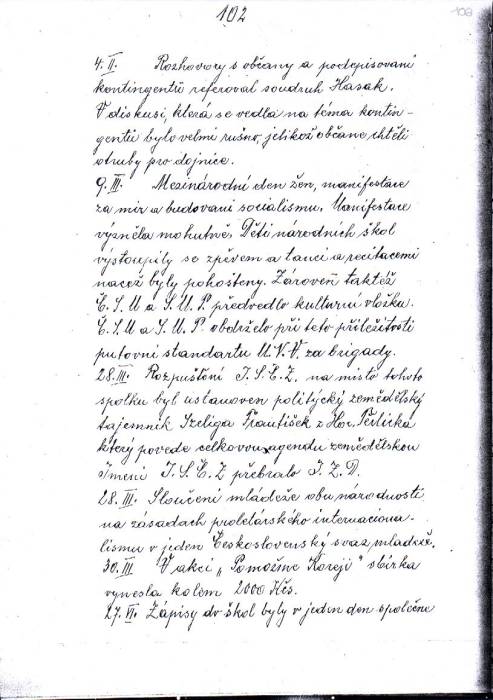 102
102
4. II. Rozhovory s občany a podepisovaní
kontingentů referoval soudruh Hasak.
V diskusi, která se vedla na téma kontin-
gentů bylo velmi rušno, jelikož občane chtěli
otruby pro dojnice.
9. III. Mezinárodní den žen, manifestace
za mír a budovaní socialismu. Manifestace
vyzněla mohutně. Děti národních škol
vystoupily se zpěvem a tanci a recitacemi
nacož byly pohoštěny. Zároveň taktéž
Č. S. M a S. M. P. předvedlo kulturní vložku.
Č. S. M a S. M. P. obdrželo při teto příležitosti
putovní standartu M. N. V. za brigady.
28. III. Rozpuštění J. S. Č. Z. na místo tohoto
spolku byl ustanoven politycký zemědělský
tajemník Szeliga František z Hor. Těrlicka
který povede celkovou agendu zemědělskou
Jmění J. S. Č. Z přebralo J. Z. D.
28. III. Sloučení mládeže obu národností
na zásadach proletárského internaciona-
lismu v jeden Československý svaz mladeže.
30. III V akci „Pomožme Koreji" sbírka
vynesla kolem 2000 Kčs.
27. VI. Zápisy do škol byly v jeden den společne